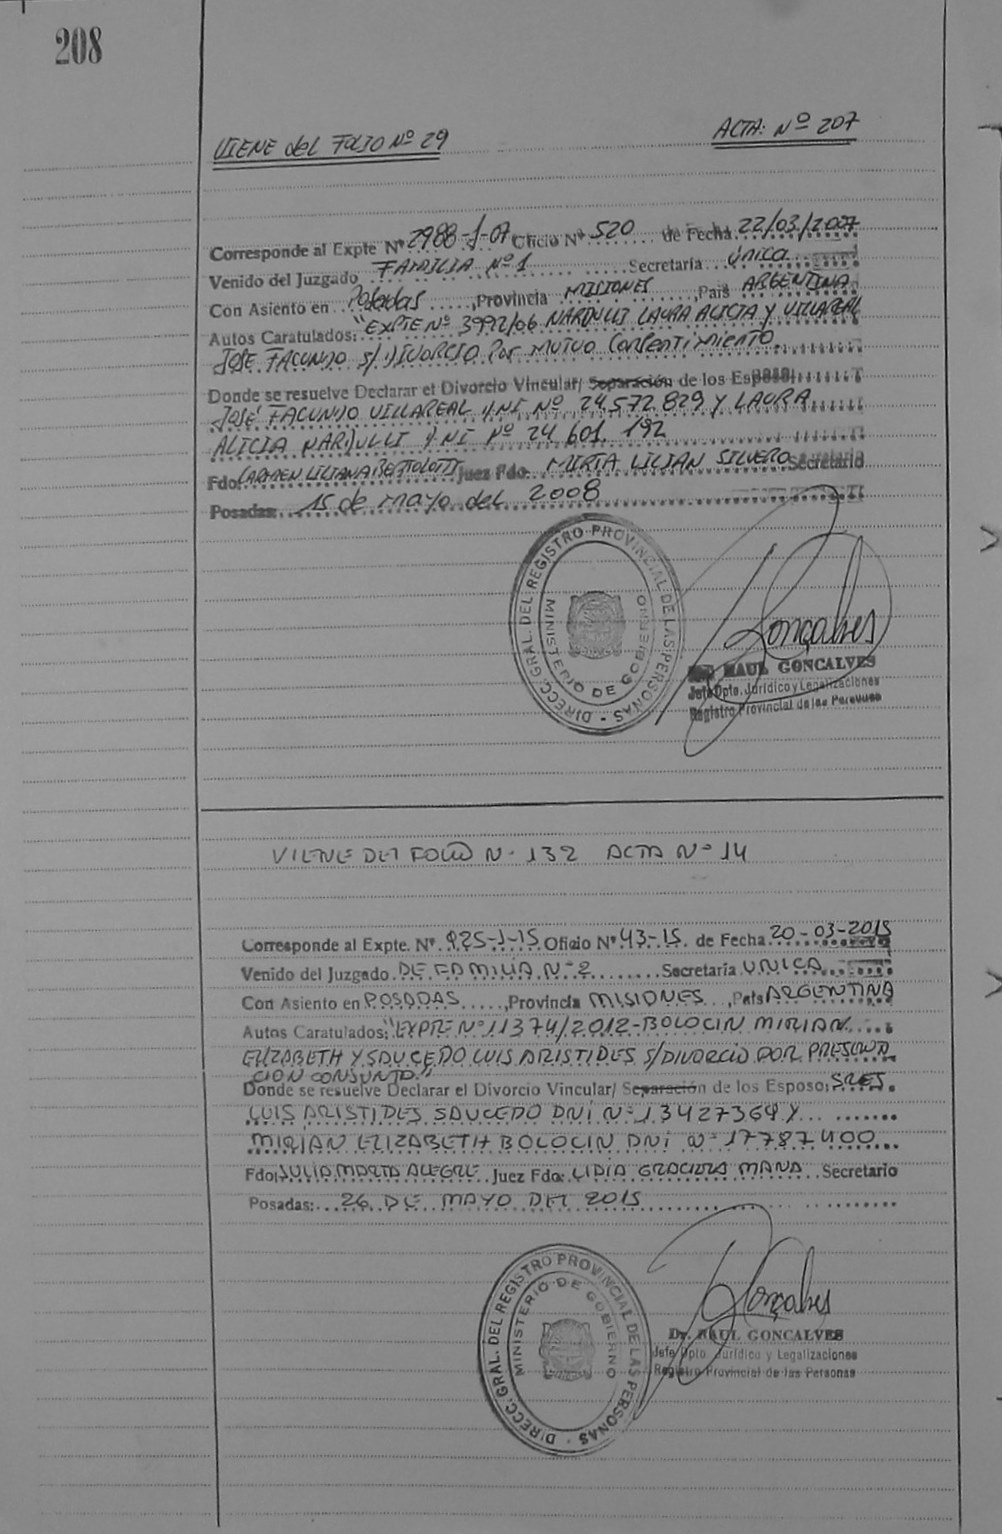 208
VIENE del FOLIO Nº 29
ACTA: Nº 207
Corresponde al Expte Nº 2988-1-07 Oficio Nº 520 de Fecha 22/03/2007
Venido del Juzgado FAMILIA Nº 1 Secretaría única
Con Asiento en Posadas, Provincia MISIONES, País ARGENTINA
Autos Caratulados: "EXPTE Nº 3992/06 NARDULLI LAURA ALICIA y VILLAREAL
JOSE FACUNDO S/ DIVORCIO Por MUTUO Consentimiento.
Donde se resuelve Declarar el Divorcio Vincular/ Separación de los Esposos
JOSÉ FACUNDO VILLAREAL DNI Nº 24.572.829 Y LAURA
ALICIA NARDULLI DNI Nº 24.601.192
Fdo: CARMEN LILIANA BERTOLOTTI Juez Fdo: MIRTA LILIAN SILVERO Secretario
Posadas: 15 de mayo del 2008
DIRECC. GRAL. DEL REGISTRO PROVINCIAL DE LAS PERSONAS
MINISTERIO DE GOBIERNO
Gonçalves
RAUL GONCALVES
Jefe Dpto. Jurídico y Legalizaciones
Registro Provincial de las Personas
VIENE DEL FOLIO Nº 132 ACTA Nº 14
Corresponde al Expte. Nº 925-1-15 Oficio Nº 43-15. de Fecha 20-03-2015
Venido del Juzgado DE FAMILIA Nº 2 Secretaría UNICA
Con Asiento en POSADAS, Provincia MISIONES, País ARGENTINA
Autos Caratulados: "EXPTE Nº 11374/2012-BOLOCIN MIRIAN
ELIZABETH Y SAUCEDO LUIS ARISTIDES S/DIVORCIO POR PRESENTA
CION CONJUNTA"
Donde se resuelve Declarar el Divorcio Vincular/ Separación de los Esposo; SRES.
LUIS ARISTIDES SAUCEDO DNI Nº 13427369 Y
MIRIAN ELIZABETH BOLOCIN DNI Nº 17787400
Fdo: JULIA MARTA ALEGRE Juez Fdo: LIDIA GRACIELA MANA Secretario
Posadas: 26 DE MAYO DEL 2015
DIRECC. GRAL. DEL REGISTRO PROVINCIAL DE LAS PERSONAS
MINISTERIO DE GOBIERNO
Gonçalves
Dr. RAUL GONCALVES
Jefe Dpto. Jurídico y Legalizaciones
Registro Provincial de las Personas